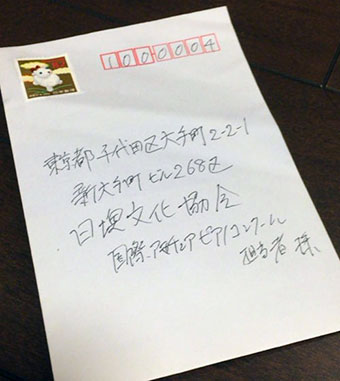 1000004
東京都千代田区大手町2-2-1
新大手町ビル268区
日墺文化協会
国際アマチュアピアノコンクール
担当者 様